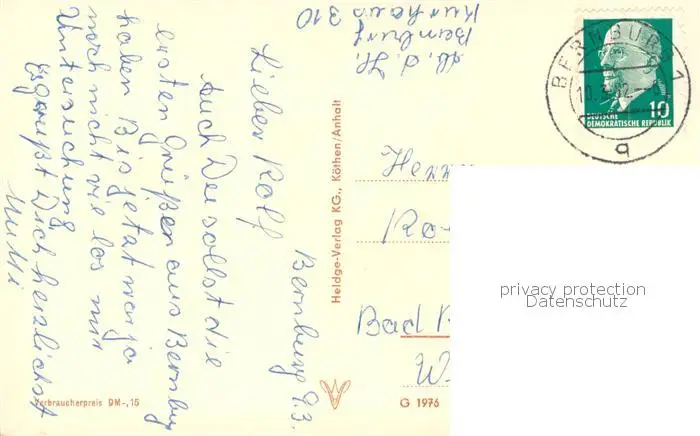 Bernburg 9.3.
Lieber Rolf
Auch Du sollst die
ersten Grüße aus Bernbug
haben Bis jetzt war ja
noch nicht viel los nur
Untersuchung
Es grüßt Dich herzlichst
Mutti
Abs. d. H.
Bernburg
Kurhaus 310
BERNBURG 1
10.3.62
q
10
DEUTSCHE
DEMOKRATISCHE REPUBLIK
Herrn
Ro
Bad
W
Heldge-Verlag KG., Köthen/Anhalt
Verbraucherpreis DM -,15
G 1976
privacy protection
Datenschutz